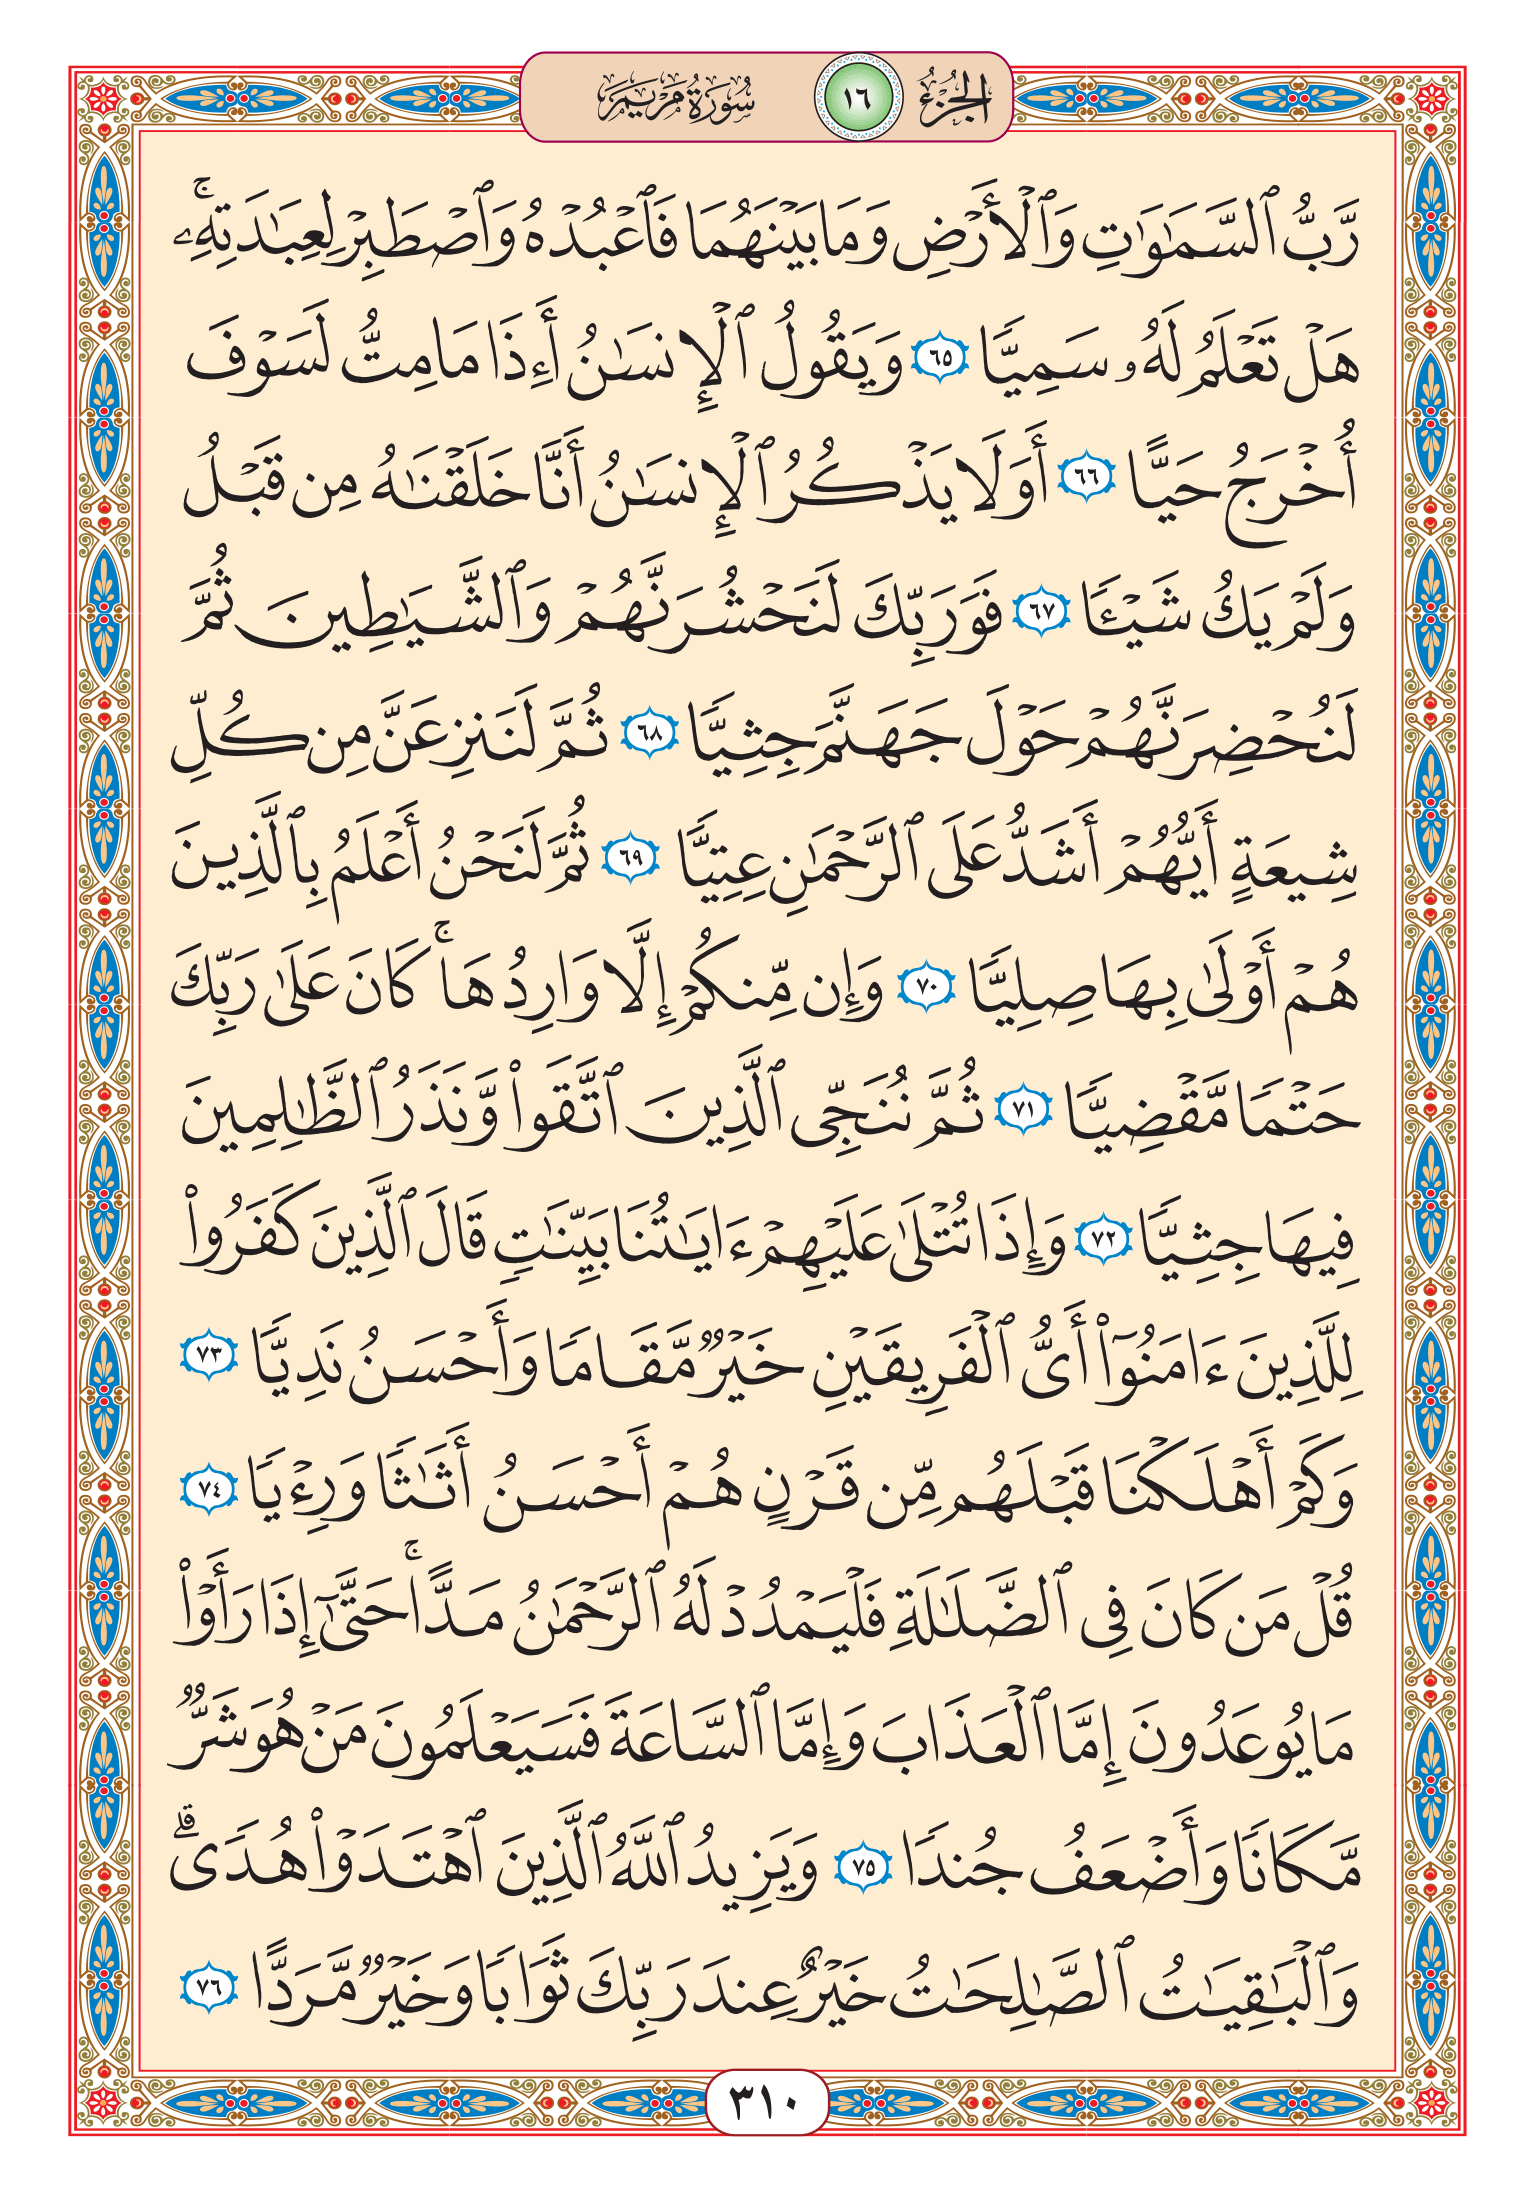 الجزء ١٦ سورة مريم
رَّبُّ ٱلسَّمَٰوَٰتِ وَٱلْأَرْضِ وَمَا بَيْنَهُمَا فَٱعْبُدْهُ وَٱصْطَبِرْ لِعِبَٰدَتِهِۦۚ
هَلْ تَعْلَمُ لَهُۥ سَمِيًّا ٦٥ وَيَقُولُ ٱلْإِنسَٰنُ أَءِذَا مَا مِتُّ لَسَوْفَ
أُخْرَجُ حَيًّا ٦٦ أَوَلَا يَذْكُرُ ٱلْإِنسَٰنُ أَنَّا خَلَقْنَٰهُ مِن قَبْلُ
وَلَمْ يَكُ شَيْـًٔا ٦٧ فَوَرَبِّكَ لَنَحْشُرَنَّهُمْ وَٱلشَّيَٰطِينَ ثُمَّ
لَنُحْضِرَنَّهُمْ حَوْلَ جَهَنَّمَ جِثِيًّا ٦٨ ثُمَّ لَنَنزِعَنَّ مِن كُلِّ
شِيعَةٍ أَيُّهُمْ أَشَدُّ عَلَى ٱلرَّحْمَٰنِ عِتِيًّا ٦٩ ثُمَّ لَنَحْنُ أَعْلَمُ بِٱلَّذِينَ
هُمْ أَوْلَىٰ بِهَا صِلِيًّا ٧٠ وَإِن مِّنكُمْ إِلَّا وَارِدُهَاۚ كَانَ عَلَىٰ رَبِّكَ
حَتْمًا مَّقْضِيًّا ٧١ ثُمَّ نُنَجِّى ٱلَّذِينَ ٱتَّقَوا۟ وَّنَذَرُ ٱلظَّٰلِمِينَ
فِيهَا جِثِيًّا ٧٢ وَإِذَا تُتْلَىٰ عَلَيْهِمْ ءَايَٰتُنَا بَيِّنَٰتٍ قَالَ ٱلَّذِينَ كَفَرُوا۟
لِلَّذِينَ ءَامَنُوٓا۟ أَىُّ ٱلْفَرِيقَيْنِ خَيْرٌ مَّقَامًا وَأَحْسَنُ نَدِيًّا ٧٣
وَكَمْ أَهْلَكْنَا قَبْلَهُم مِّن قَرْنٍ هُمْ أَحْسَنُ أَثَٰثًا وَرِءْيًا ٧٤
قُلْ مَن كَانَ فِى ٱلضَّلَٰلَةِ فَلْيَمْدُدْ لَهُ ٱلرَّحْمَٰنُ مَدًّاۚ حَتَّىٰٓ إِذَا رَأَوْا۟
مَا يُوعَدُونَ إِمَّا ٱلْعَذَابَ وَإِمَّا ٱلسَّاعَةَ فَسَيَعْلَمُونَ مَنْ هُوَ شَرٌّ
مَّكَانًا وَأَضْعَفُ جُندًا ٧٥ وَيَزِيدُ ٱللَّهُ ٱلَّذِينَ ٱهْتَدَوْا۟ هُدًىۗ
وَٱلْبَٰقِيَٰتُ ٱلصَّٰلِحَٰتُ خَيْرٌ عِندَ رَبِّكَ ثَوَابًا وَخَيْرٌ مَّرَدًّا ٧٦
٣١٠